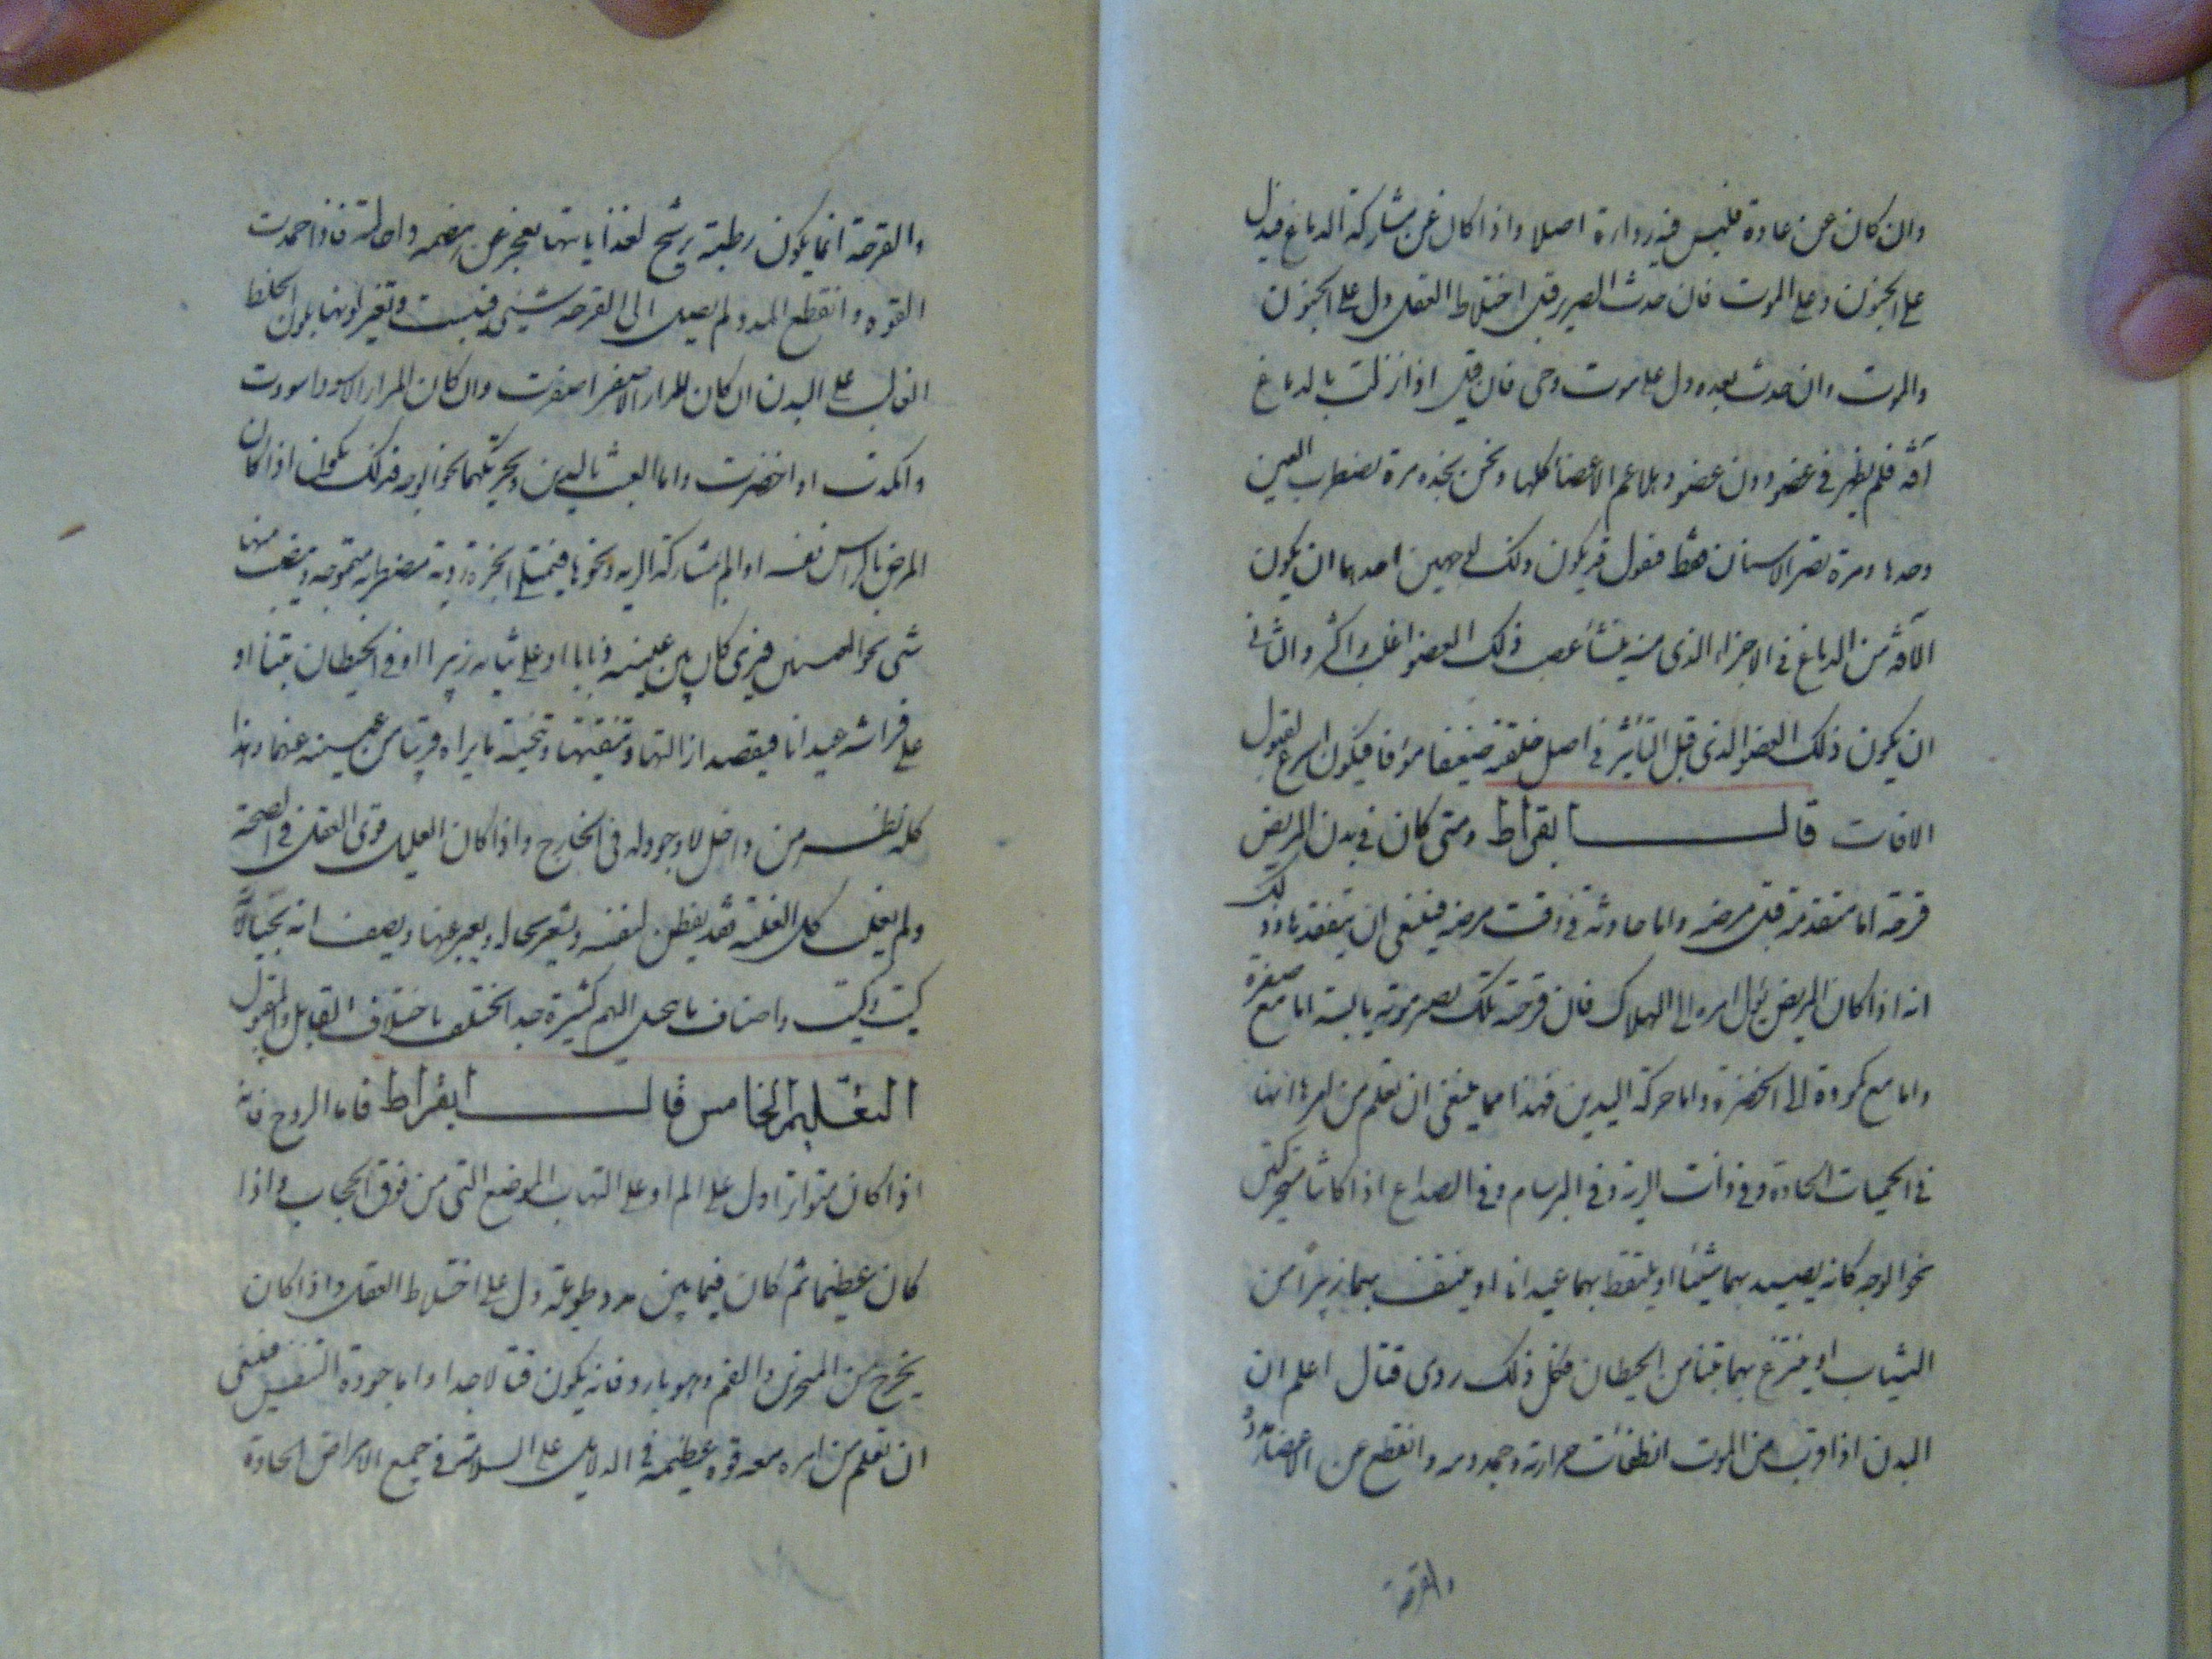 وان كان عن عادة فليس فيه رداءة اصلا واذا كان عن مشاركة الدماغ فيدل
على الجنون وعلى الموت فان حدث الصرير قبل اختلاط العقل دل على الجنون
والموت وان حدث بعده دل على موت وحى فان قيل اذا نزلت بالدماغ
آفة فلم يظهر في عضو دون عضو وهلا عم الاعضا كلها ونحن نجده مرة تضطرب العين
وحدها ومرة تصر الاسنان فقط فنقول قد يكون ذلك لوجهين احدهما ان يكون
الآفة من الدماغ في الاجزاء الذى منه ينشأ عصب ذلك العضو اغلب واكثر والثانى
ان يكون ذلك العضو الذى قبل التأثير في اصل خلقته ضعيفا مؤفا فيكون اسرع لقبول
الافات قال ابقراط ومتى كان في بدن المريض
قرحة اما متقدمة قبل مرضه واما حادثة في وقت مرضه فينبغى ان يتفقدها وذلك
انه اذا كان المريض يؤل امره الى الهلاك فان قرحته تلك تصير موته يابسة اما مع صفرة
واما مع كمودة الى الخضرة واما حركة اليدين فهذا مما ينبغى ان تعلم من امرها انها
في الحميات الحادة وفى ذات الرية وفى البرسام وفى الصداع اذا كانتا متحركتين
نحو الوجه كانه يصيد بهما شيئا او يلتقط بهما عيدانا او ينتف بهما زئيرا من
الثياب او ينتزع بهما تبنا من الحيطان فكل ذلك ردى قتال اعلم ان
البدن اذا قرب من الموت انطفأت حرارته وجمد دمه وانقطع عن الاعضا مدد
والقرحة
والقرحة انما يكون رطبة برشح لغذايا تيها تعجز عن هضمه واحالته فاذا خمدت
القوه وانقطع المدد ولم يصل الى القرحه شيئى فيبست وتغير لونها بلون الخلط
الغالب على البدن ان كان المرار الاصفر اصفرت وان كان المرار الاسود اسودت
واكمدت او اخضرت واما العبث باليدين وتحريكهما نحو الوجه فذلك يكون اذا كان
المرض بالراس نفسه او الم بمشاركة الريه ونحوها فيمتلى ابخرة ردية متموجه وينصب منها
شى نحو العينين فيرى كان بين عينيه ذبابا او على ثيابه زئيرا او في الحيطان تبنا او
على فراشه عيدانا فيقصد ازالتها وتنقيتها وتنحية ما يراه قريبا من عينيه عنهما وهذا
كله نظر من داخل لا وجود له في الخارج واذا كان العليل قوى العقل في الصحة
ولم يغفل كل الغفلة فقد يفطن لنفسه ويشعر بحاله ويعبر عنها ويصف انه يخيل له
كيت وكيت واصناف ما يخيل اليهم كثيرة جدا تختلف باختلاف القابل والمقبول
التعليم الخامس قال ابقراط فاما الروح فانه
اذا كان متواترا دل على الم او على التهاب المواضع التى من فوق الحجاب واذا
كان عظيما ثم كان فيما بين مدد طويلة دل على اختلاط العقل واذا كان
يخرج من المنخرين والفم وهو بارد فانه يكون قتالا جدا واما جودة التنفس فينبغى
ان تعلم من امره معه قوة عظيمة في الدلايل على السلامة في جميع الامراض الحادة